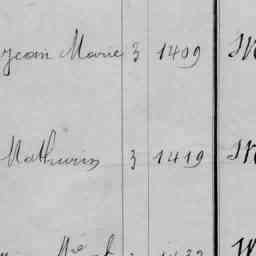 Jean Marie 3 1409 M
Mathurin 3 1419 M